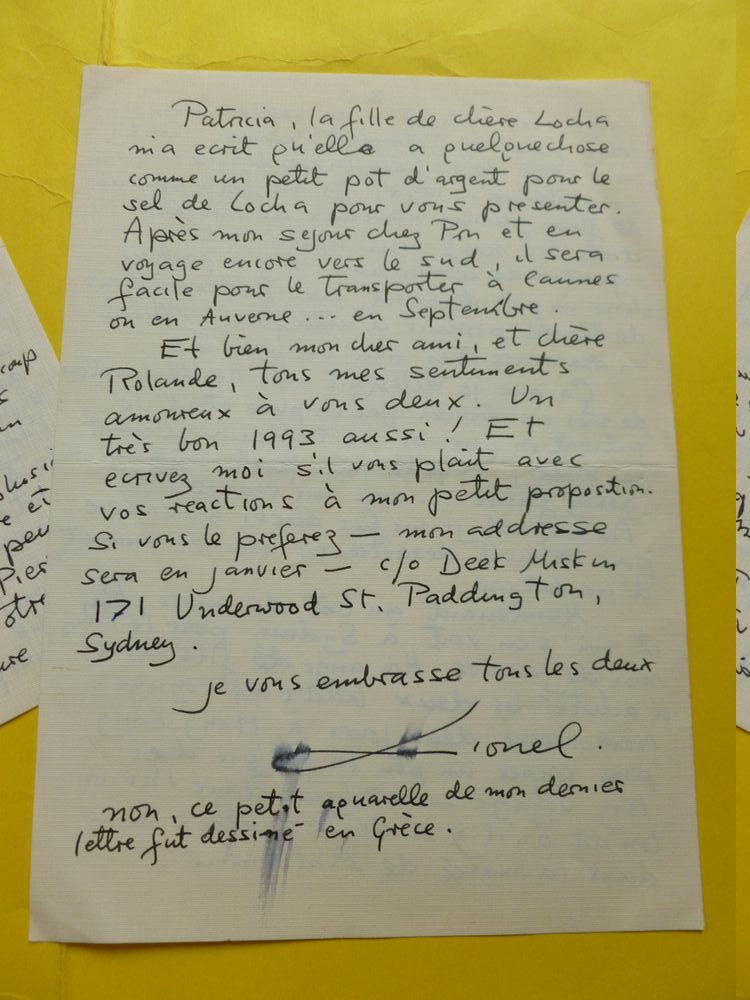 Patricia, la fille de chère Locha
m'a ecrit qu'elle a quelquechose
comme un petit pot d'argent pour le
sel de Locha pour vous presenter.
Après mon sejour chez Pon et en
voyage encore vers le sud, il sera
facile pour le transporter à Cannes
ou en Auverne... en Septembre.
Et bien mon cher ami, et chère
Rolande, tous mes sentiments
amoureux à vous deux. Un
très bon 1993 aussi! Et
ecrivez moi s'il vous plait avec
vos reactions à mon petit proposition.
Si vous le preferez — mon addresse
sera en janvier — c/o Deek Miskin
171 Underwood St. Paddington,
Sydney.
je vous embrasse tous les deux
Lionel.
non, ce petit aquarelle de mon dernier
lettre fut dessiné en Grèce.